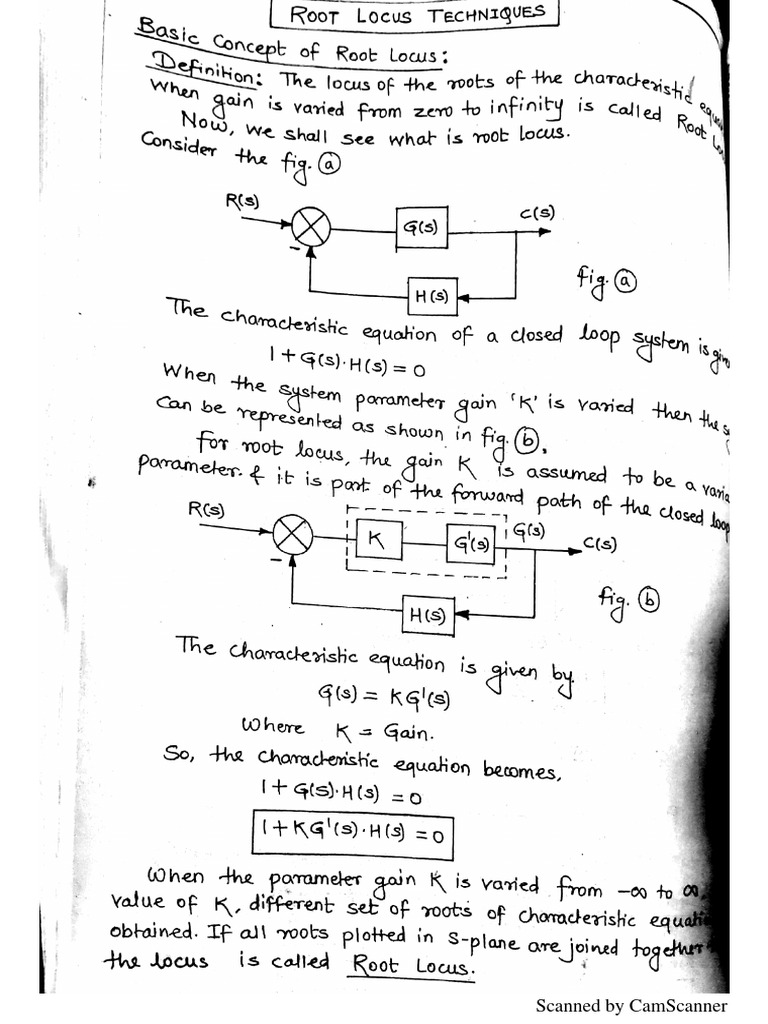 ROOT LOCUS TECHNIQUES
Basic Concept of Root Locus:
Definition: The locus of the roots of the characteristic
when gain is varied from zero to infinity is called Root
Now, we shall see what is root locus.
Consider the fig. (a)
R(s)
G(s)
C(s)
-
H(s)
fig. (a)
The characteristic equation of a closed loop system is
1+G(s).H(s) = 0
When the system parameter gain 'K' is varied then the
can be represented as shown in fig. (b).
for root locus, the gain K is assumed to be a
parameter. & it is part of the forward path of the closed
R(s)
K
G'(s)
G(s)
C(s)
-
H(s)
fig. (b)
The characteristic equation is given by.
G(s) = KG'(s)
Where K = Gain.
So, the characteristic equation becomes,
1+G(s).H(s) = 0
1+KG'(s).H(s) = 0
When the parameter gain K is varied from -∞ to ∞,
value of K, different set of roots of characteristic
obtained. If all roots plotted in S-plane are joined together
the locus is called Root Locus.
Scanned by CamScanner